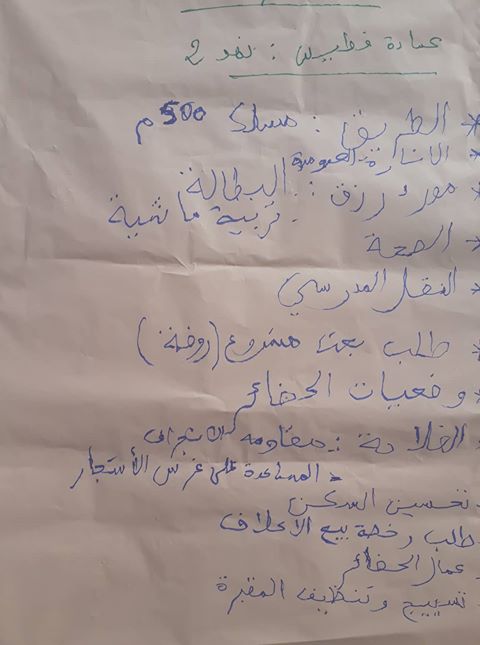 عمادة فطيس : نفر 2
* الطريق : مسلك 500 م
* الانارة العمومية
* مورد رزق : البطالة
تربية ماشية
* الصحة
* النقل المدرسي
* طلب بعث مشروع (روضة)
* وضعيات الحضائر
* الفلاحة : مقاومة الانجراف
* المساعدة على غرس الأشجار
- تحسين السكن
- طلب رخصة بيع الاعلاف
- عمال الحضائر
- تسييج وتنظيف المقبرة